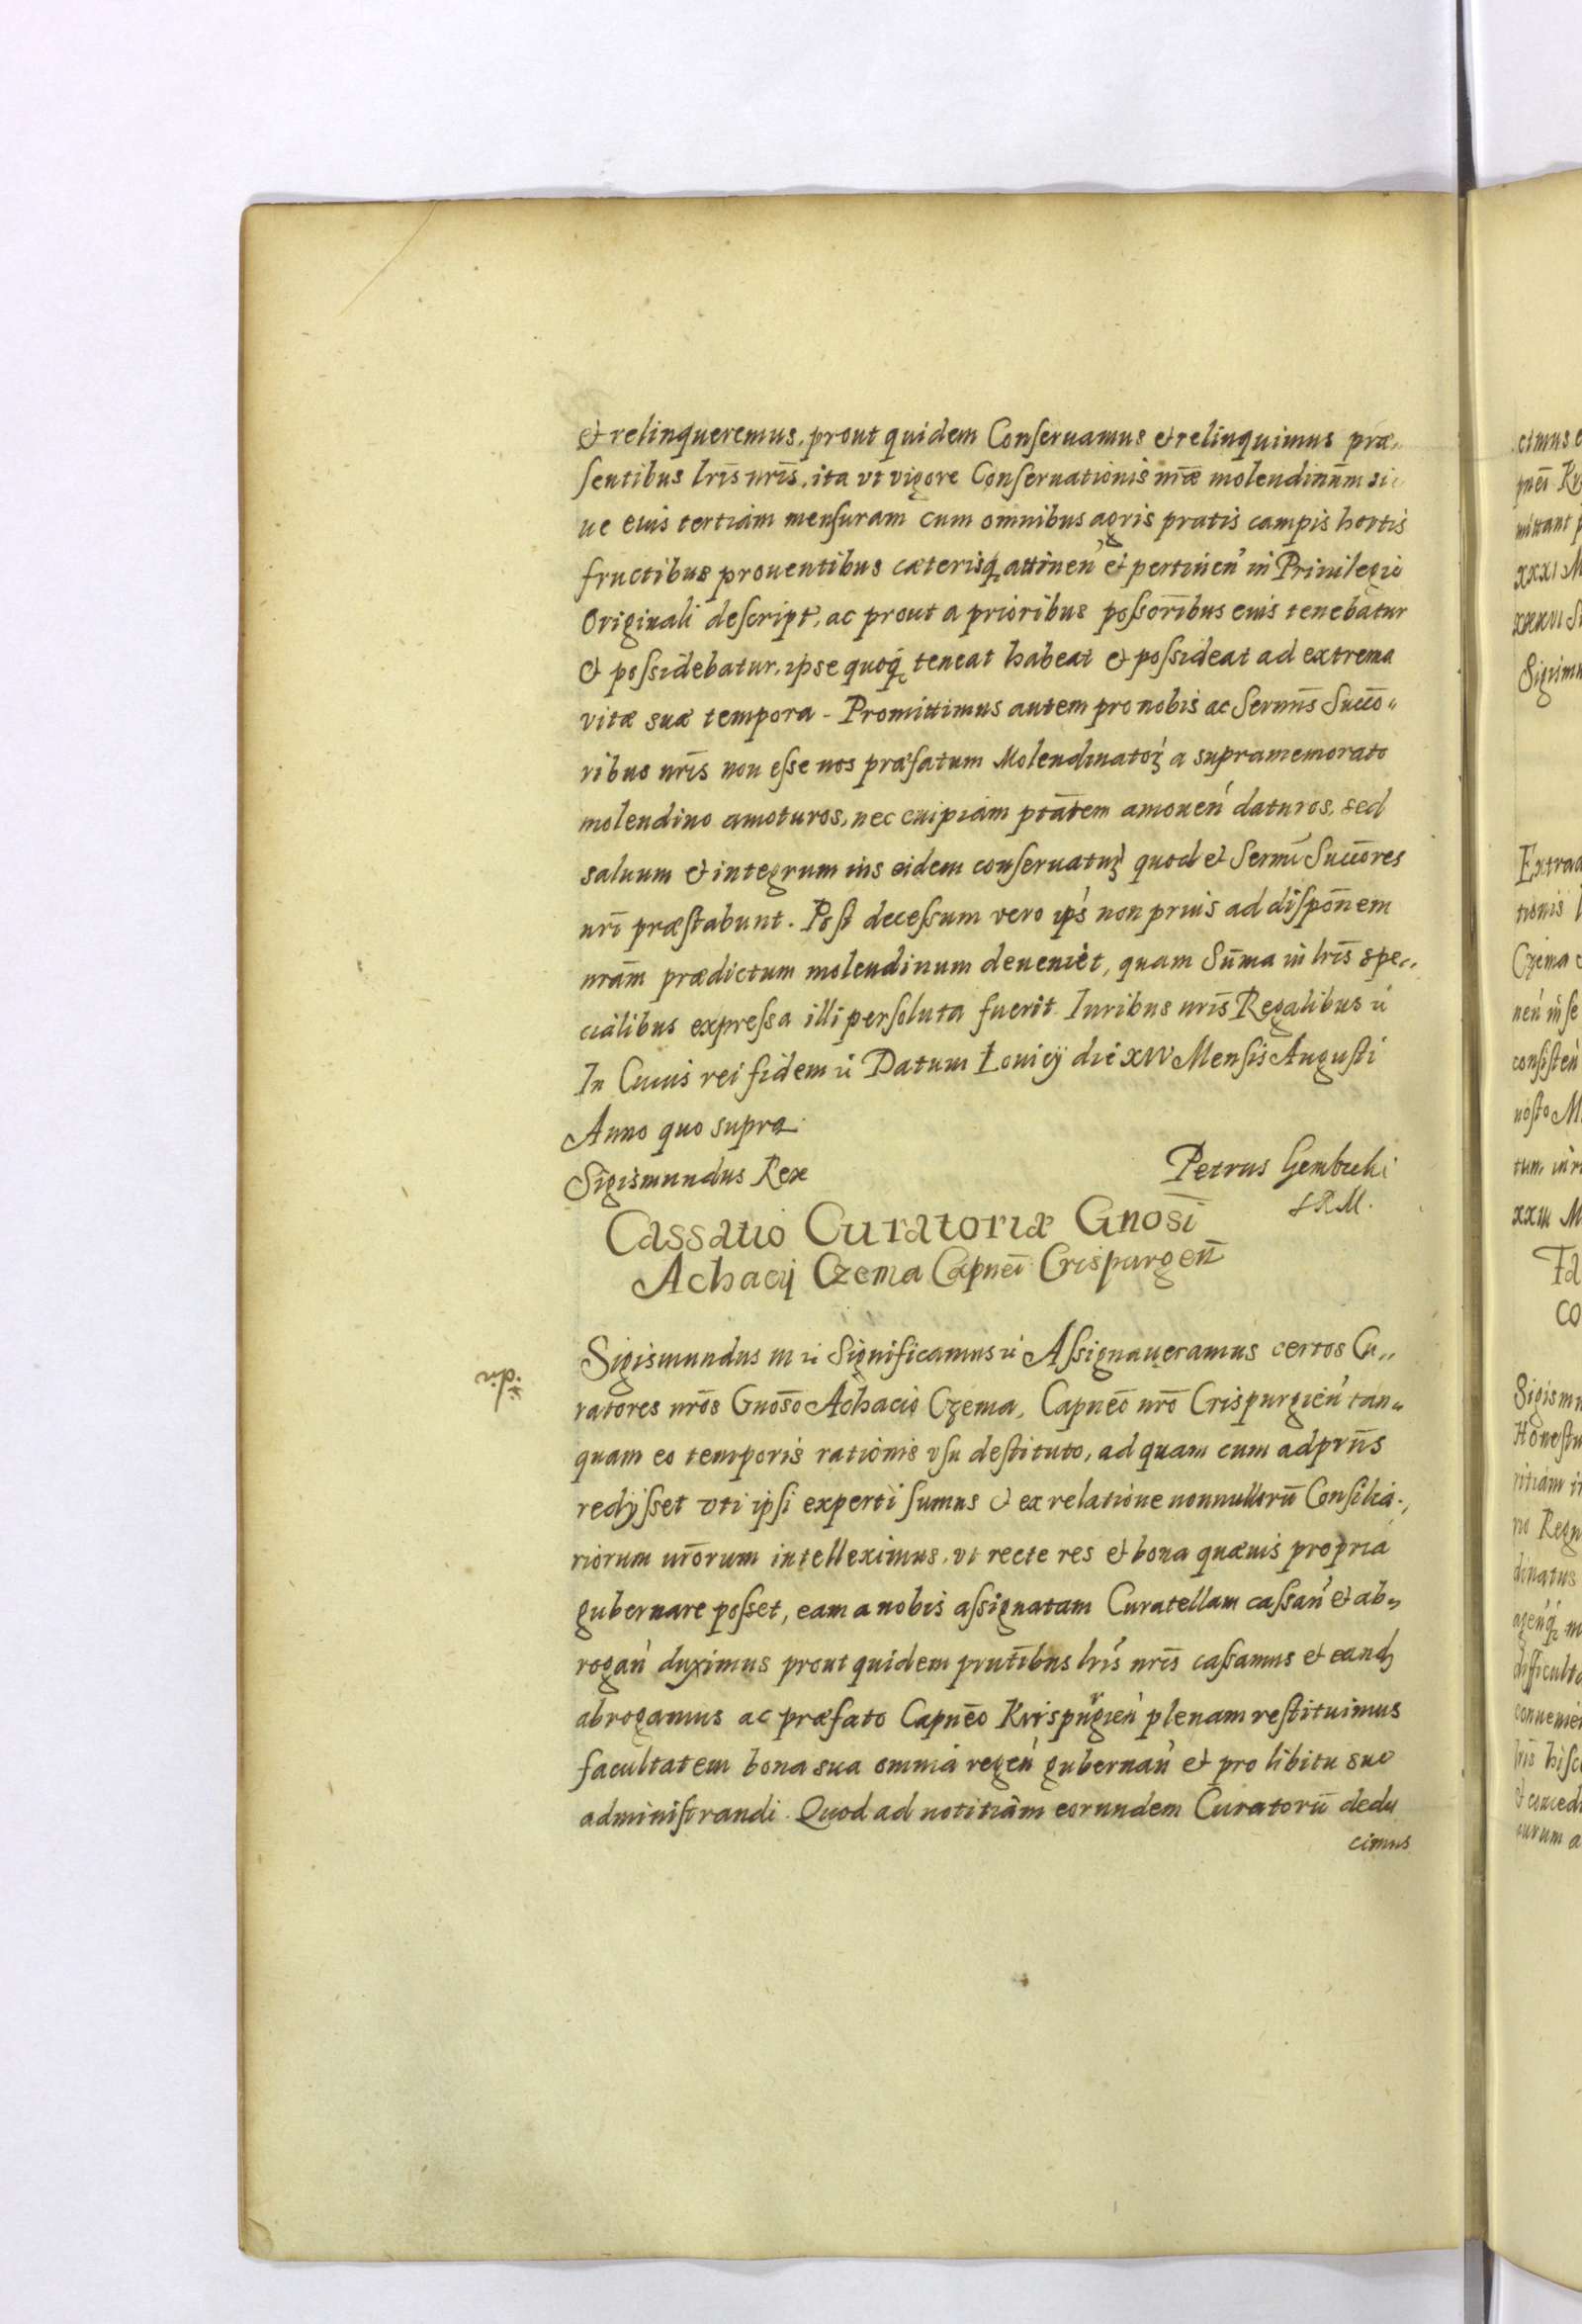 et relinqueremus, prout quidem Conseruamus et relinquimus præ-
sentibus lrīs nrīs, ita vt vigore Conseruationis nræ molendinum si-
ue eius tertiam mensuram cum omnibus agris pratis campis hortis
fructibus prouentibus cæterisq, attinen' et pertinen' in Priuilegio
Originali descript', ac prout a prioribus possorībus eius tenebatur
et possidebatur, ipse quoq, teneat habeat et possideat ad extrema
vitæ suæ tempora. Promittimus autem pro nobis ac Sermīs Succo-
ribus nrīs non esse nos præfatum Molendinatoꝝ a supramemorato
molendino amoturos, nec cuipiam ptātem amouen' daturos, sed
saluum et integrum ius eidem conseruatuꝝ quod et Sermī Succōres
nrī præstabunt. Post decessum vero ips' non prius ad dispōnem
nrām prædictum molendinum deueniet, quam Sūma in lrīs spe-
cialibus expressa illi persoluta fuerit. Iuribus nrīs Regalibus ꝛc
In Cuius rei fidem ꝛc Datum Łouicÿ die XIV Mensis Augusti
Anno quo supra
Sigismundus Rex Petrus Gembicki
S R M.
Cassatio Curatoriæ Gnosī
Achacij Czema Capneī Crispurgen̄
Sigismundus III ꝛc Significamus ꝛc Assignaueramus certos Cu-
ratores nrōs Gnosō Achacio Czema, Capneō nrō Crispurgien' tan-
quam eo temporis rationis vsu destituto, ad quam cum adprn̄s
redÿsset vti ipsi experti sumus et ex relatione nonnullorū Consilia-
riorum nrōrum intelleximus, vt recte res et bona quæuis propria
gubernare posset, eam a nobis assignatam Curatellam cassan' et ab-
rogan' duximus prout quidem prntībus lrīs nrīs cassamus et eandꝫ
abrogamus ac præfato Capneō Krispurgien' plenam restituimus
facultatem bona sua omnia regen' gubernan' et pro libitu suo
administrandi. Quod ad notitiam eorundem Curatorū dedu
cimus